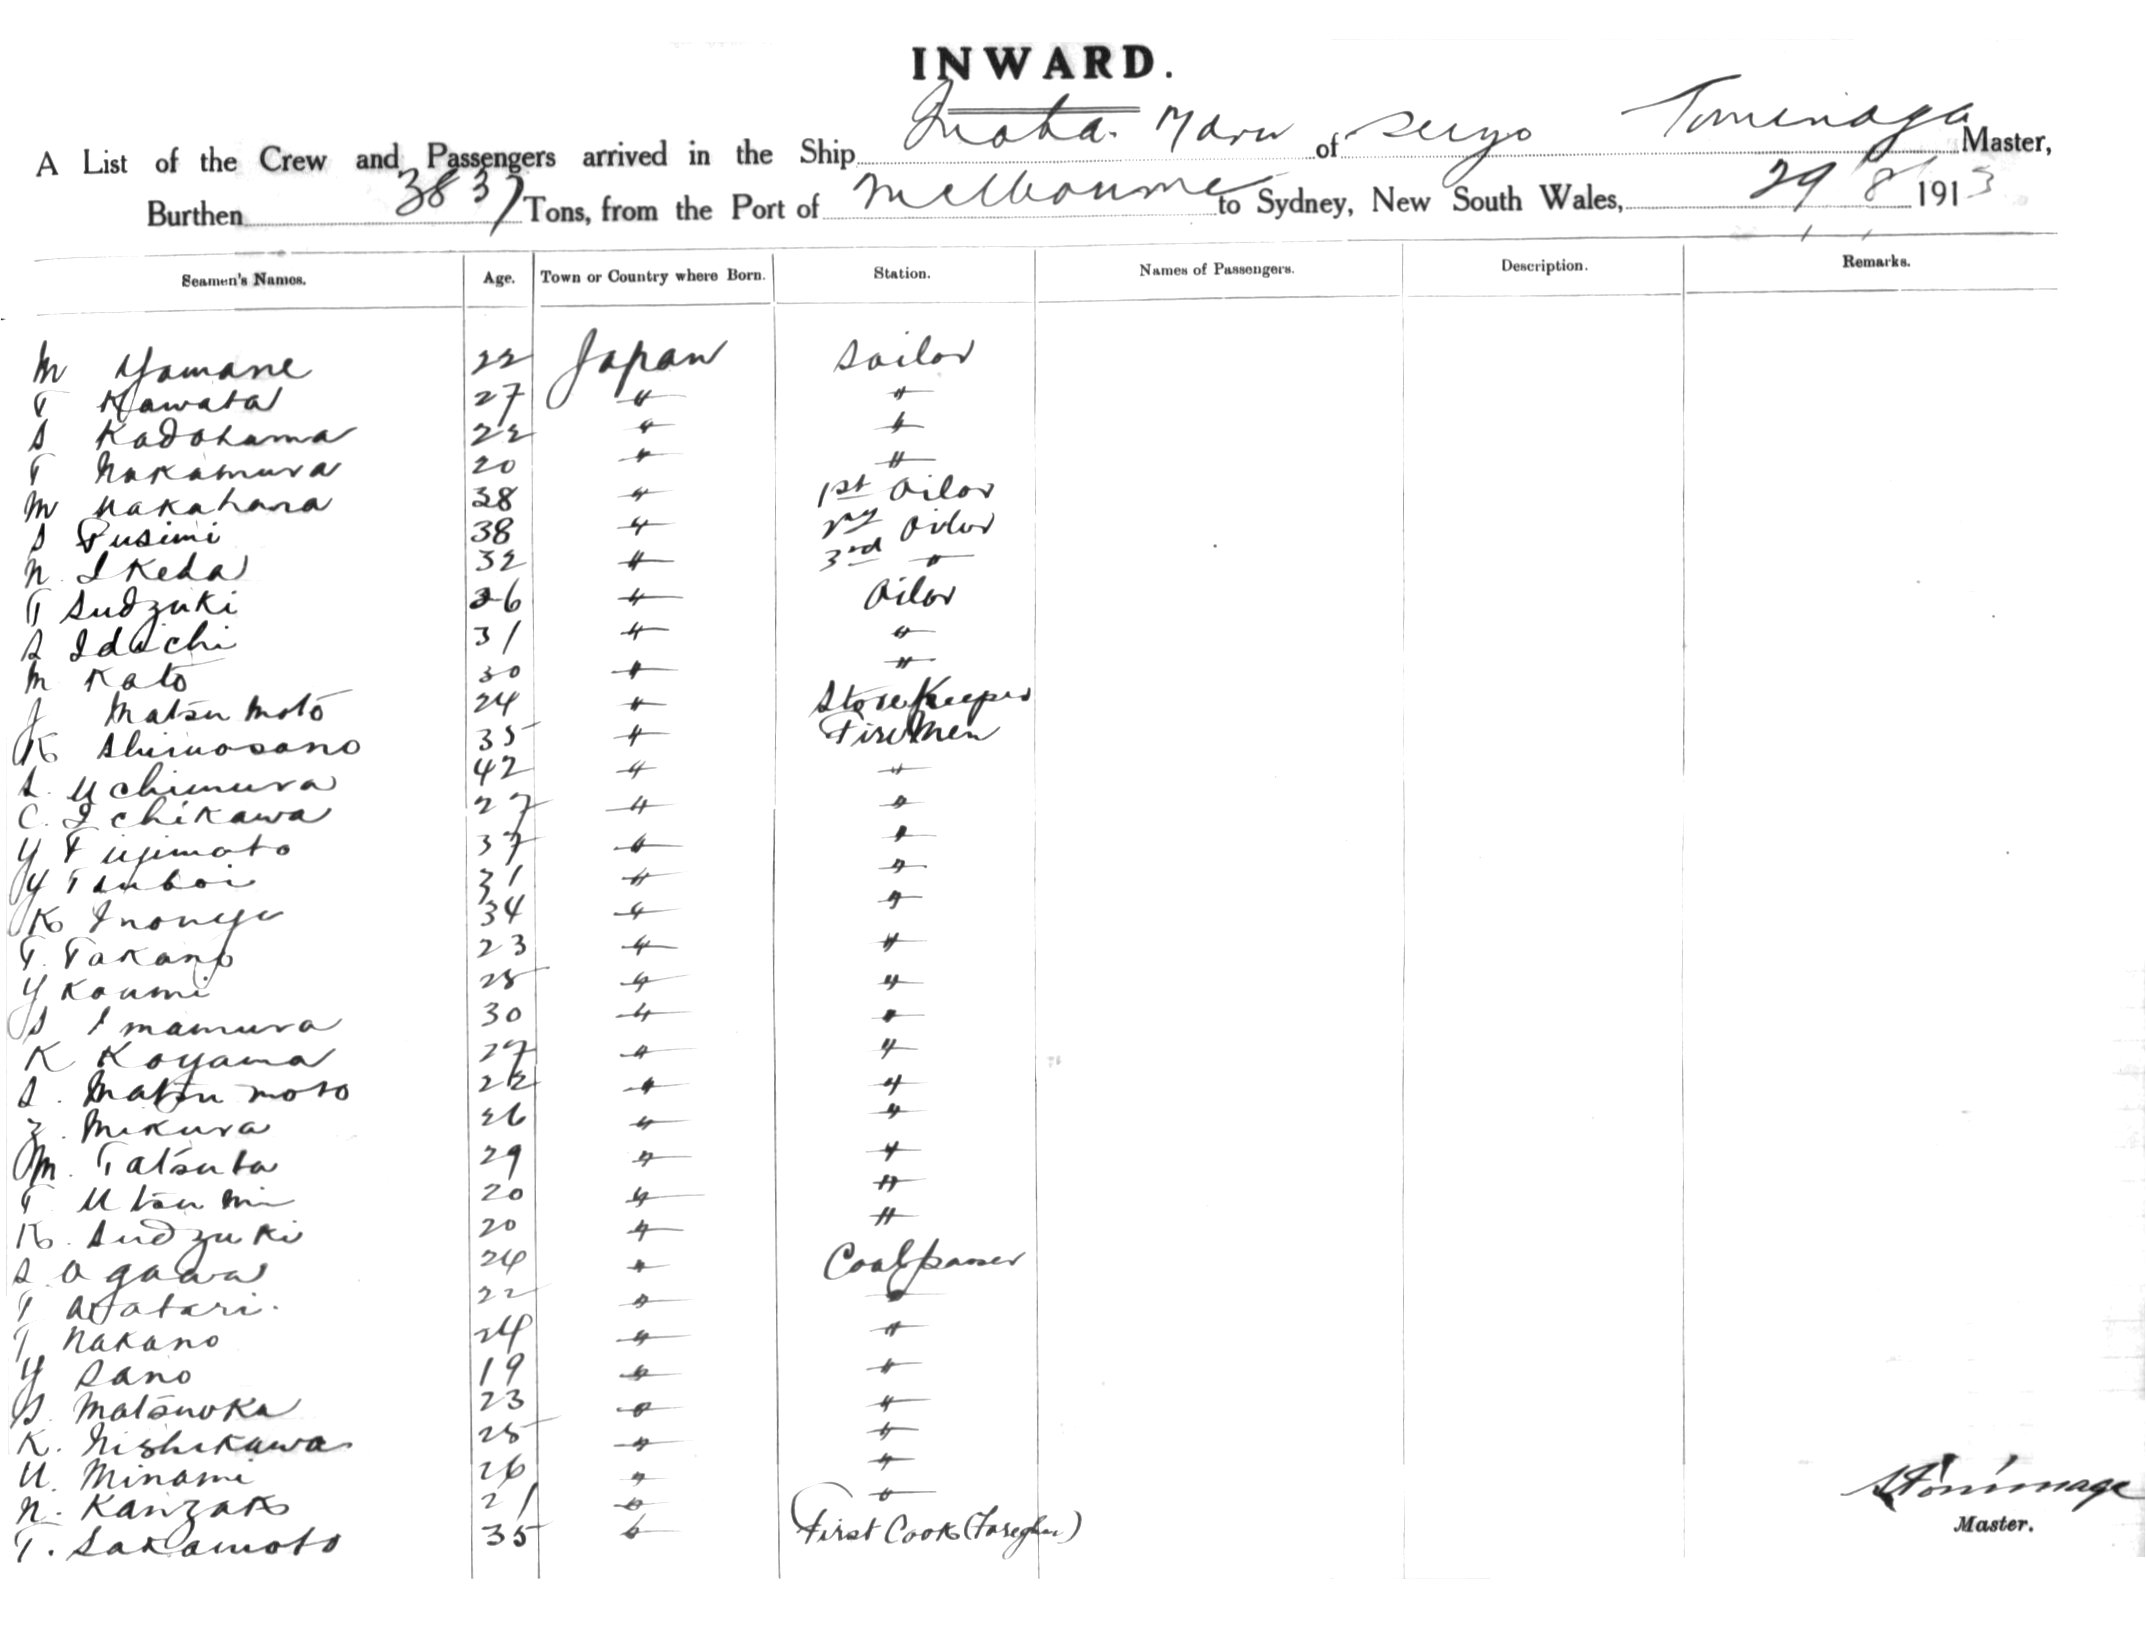 INWARD.
A List of the Crew and Passengers arrived in the Ship Maru of Seizo Tominaga Master,
Burthen 3837 Tons, from the Port of Melbourne to Sydney, New South Wales, 29/8/1913
Seamen's Names. Age. Town or Country where Born. Station. Names of Passengers. Description. Remarks.
M Yamane 22 Japan Sailor
T Kawata 27 " "
S Kadohama 22 " "
T Nakamura 20 " "
M Nakahara 38 " 1st Oilor
S Fusimi 38 " 2nd Oilor
N. Ikeda 32 " 3rd "
T Sudzuki 36 " Oilor
S Idachi 31 " "
M Kato 30 " "
J Matsumoto 24 " Store Keeper
K Shimosano 35 " FireMen
S. Uchimura 42 " "
C. Ichikawa 27 " "
Y Fujimoto 37 " "
Y Tsuboi 31 " "
K Inouye 34 " "
T. Takano 23 " "
Y Koumi 25 " "
S Imamura 30 " "
K Koyama 27 " "
S. Matsumoto 22 " "
Z. Mikura 26 " "
M. Tatsuta 29 " "
T Utsumi 20 " "
K. Sudzuki 20 " "
S. Ogawa 24 " Coal passer
T 22 " "
T Nakano 24 " "
Y Sano 19 " "
S. Matsuoka 23 " "
K. Nishikawa 25 " "
U. Minami 26 " "
N. Kanzaki 21 " "
T. Sakamoto 35 " First Cook
S Tominaga
Master.